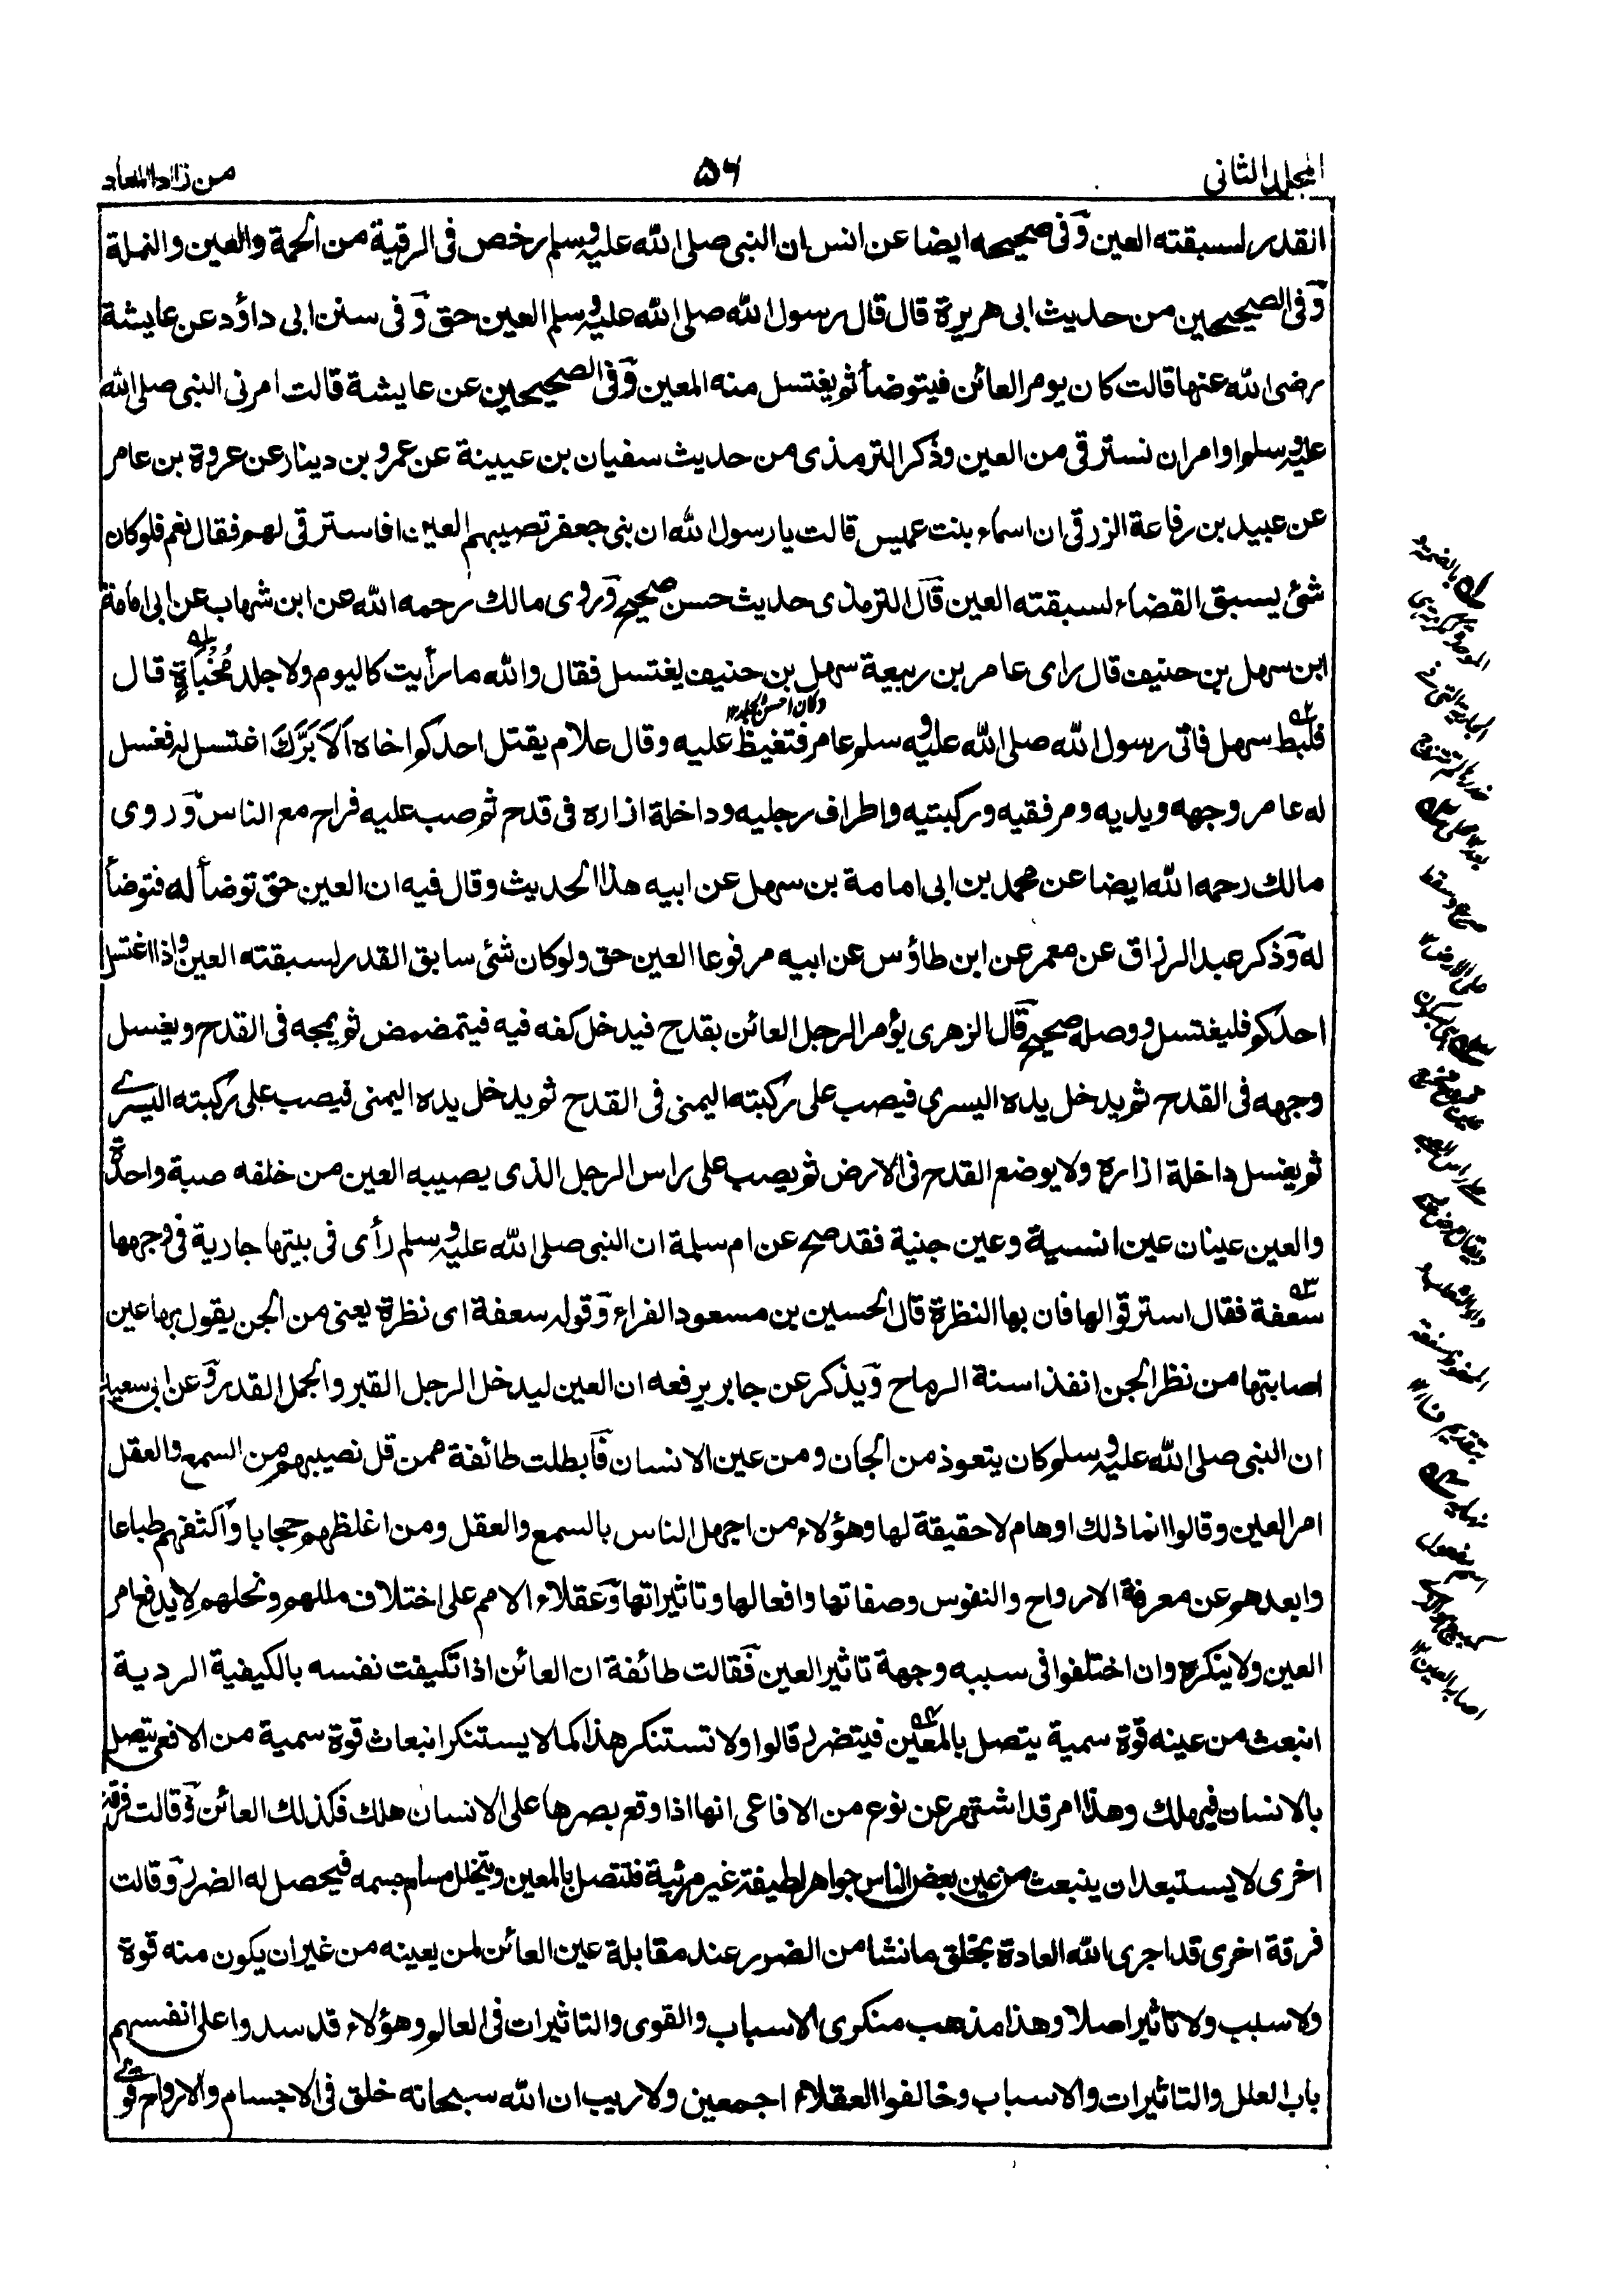 المجلد الثانى
۵۶
من زاد المعاد
القدر لسبقته العين وفى صحيحه ايضا عن انس ان النبى صلى الله عليه وسلم رخص فى الرقية من الحمة والعين والنملة
وفى الصحيحين من حديث ابى هريرة قال قال رسول الله صلى الله عليه وسلم العين حق وفى سنن ابى داؤد عن عايشة
رضى الله عنها قالت كان يومر العائن فيتوضأ ثم يغتسل منه المعين وفى الصحيحين عن عايشة قالت امرنى النبى صلى الله
عليه وسلم او امر ان نسترقى من العين وذكر الترمذى من حديث سفيان بن عيينة عن عمرو بن دينار عن عروة بن عامر
عن عبيد بن رفاعة الزرقى ان اسماء بنت عميس قالت يا رسول الله ان بنى جعفر تصيبهم العين افاسترقى لهم فقال نعم فلو كان
شئ يسبق القضاء لسبقته العين قال الترمذى حديث حسن صحيح وروى مالك رحمه الله عن ابن شهاب عن ابى امامة
ابن سهل بن حنيف قال راى عامر بن ربيعة سهل بن حنيف يغتسل فقال والله ما رأيت كاليوم ولا جلد مُخْبَأةٍ قال
وكان احسن الجلد ۱۲
فلبط سهل فاتى رسول الله صلى الله عليه وسلم عامر فتغيظ عليه وقال علام يقتل احدكم اخاه اَلَا بَرَّكَ اغتسل له فغسل
له عامر وجهه ويديه ومرفقيه وركبتيه واطراف رجليه وداخلة ازاره فى قدح ثم صب عليه فراح مع الناس وروى
مالك رحمه الله ايضا عن محمد بن ابى امامة بن سهل عن ابيه هذا الحديث وقال فيه ان العين حق توضأ له فتوضأ
له وذكر عبد الرزاق عن معمر عن ابن طاؤس عن ابيه مرفوعا العين حق ولو كان شئ سابق القدر لسبقته العين واذا اغتسل
احدكم فليغتسل ووصله صحيح قال الزهرى يؤمر الرجل العائن بقدح فيدخل كفه فيه فيتمضمض ثم يمجه فى القدح ويغسل
وجهه فى القدح ثم يدخل يده اليسرى فيصب على ركبته اليمنى فى القدح ثم يدخل يده اليمنى فيصب على ركبته اليسرے
ثم يغسل داخلة ازاره ولا يوضع القدح فى الارض ثم يصب على راس الرجل الذى يصيبه العين من خلفه صبة واحدة
والعين عينان عين انسية وعين جنية فقد صح عن ام سلمة ان النبى صلى الله عليه وسلم رأى فى بيتها جارية فى وجهها
سعفة فقال استرقوا لها فان بها النظرة قال الحسين بن مسعود الفراء وقوله سعفة اى نظرة يعنى من الجن يقول بها عين
اصابتها من نظر الجن انفذ اسنة الرماح ويذكر عن جابر يرفعه ان العين ليدخل الرجل القبر والجمل القدر وعن ابى سعيد
ان النبى صلى الله عليه وسلم كان يتعوذ من الجان ومن عين الانسان فابطلت طائفة ممن قل نصيبهم من السمع والعقل
امر العين وقالوا انما ذلك اوهام لا حقيقة لها وهؤلاء من اجهل الناس بالسمع والعقل ومن اغلظهم حجابا واكثفهم طباعا
وابعدهم عن معرفة الارواح والنفوس وصفاتها وافعالها وتاثيراتها وعقلاء الامم على اختلاف مللهم ونحلهم لا يدفع امر
العين ولا ينكره وان اختلفوا فى سببه وجهة تاثير العين فقالت طائفة ان العائن اذا تكيفت نفسه بالكيفية الردية
انبعث من عينه قوة سمية يتصل بالمعين فيتضرر قالوا ولا تستنكر هذا كما لا يستنكر انبعاث قوة سمية من الافعى يتصل
بالانسان فيهلك وهذا امر قد اشتهر عن نوع من الافاعى انها اذا وقع بصرها على الانسان هلك فكذلك العائن وقالت فرقة
اخرى لا يستبعد ان ينبعث من عين بعض الناس جواهر لطيفة غير مرئية فتتصل بالمعين ويتخلل مسام جسمه فيحصل له الضرر وقالت
فرقة اخرى قد اجرى الله العادة بخلق ما نشا من الضرر عند مقابلة عين العائن لمن يعينه من غير ان يكون منه قوة
ولا سبب ولا تاثير اصلا وهذا مذهب منكرى الاسباب والقوى والتاثيرات فى العالم وهؤلاء قد سدوا على انفسهم
باب العلل والتاثيرات والاسباب وخالفوا العقلاء اجمعين ولا ريب ان الله سبحانه خلق فى الاجسام والارواح قوے
الجارية التى فى
صرع وسقط
على الارض ۱۲
بتقديم
اصابه العين ۱۲